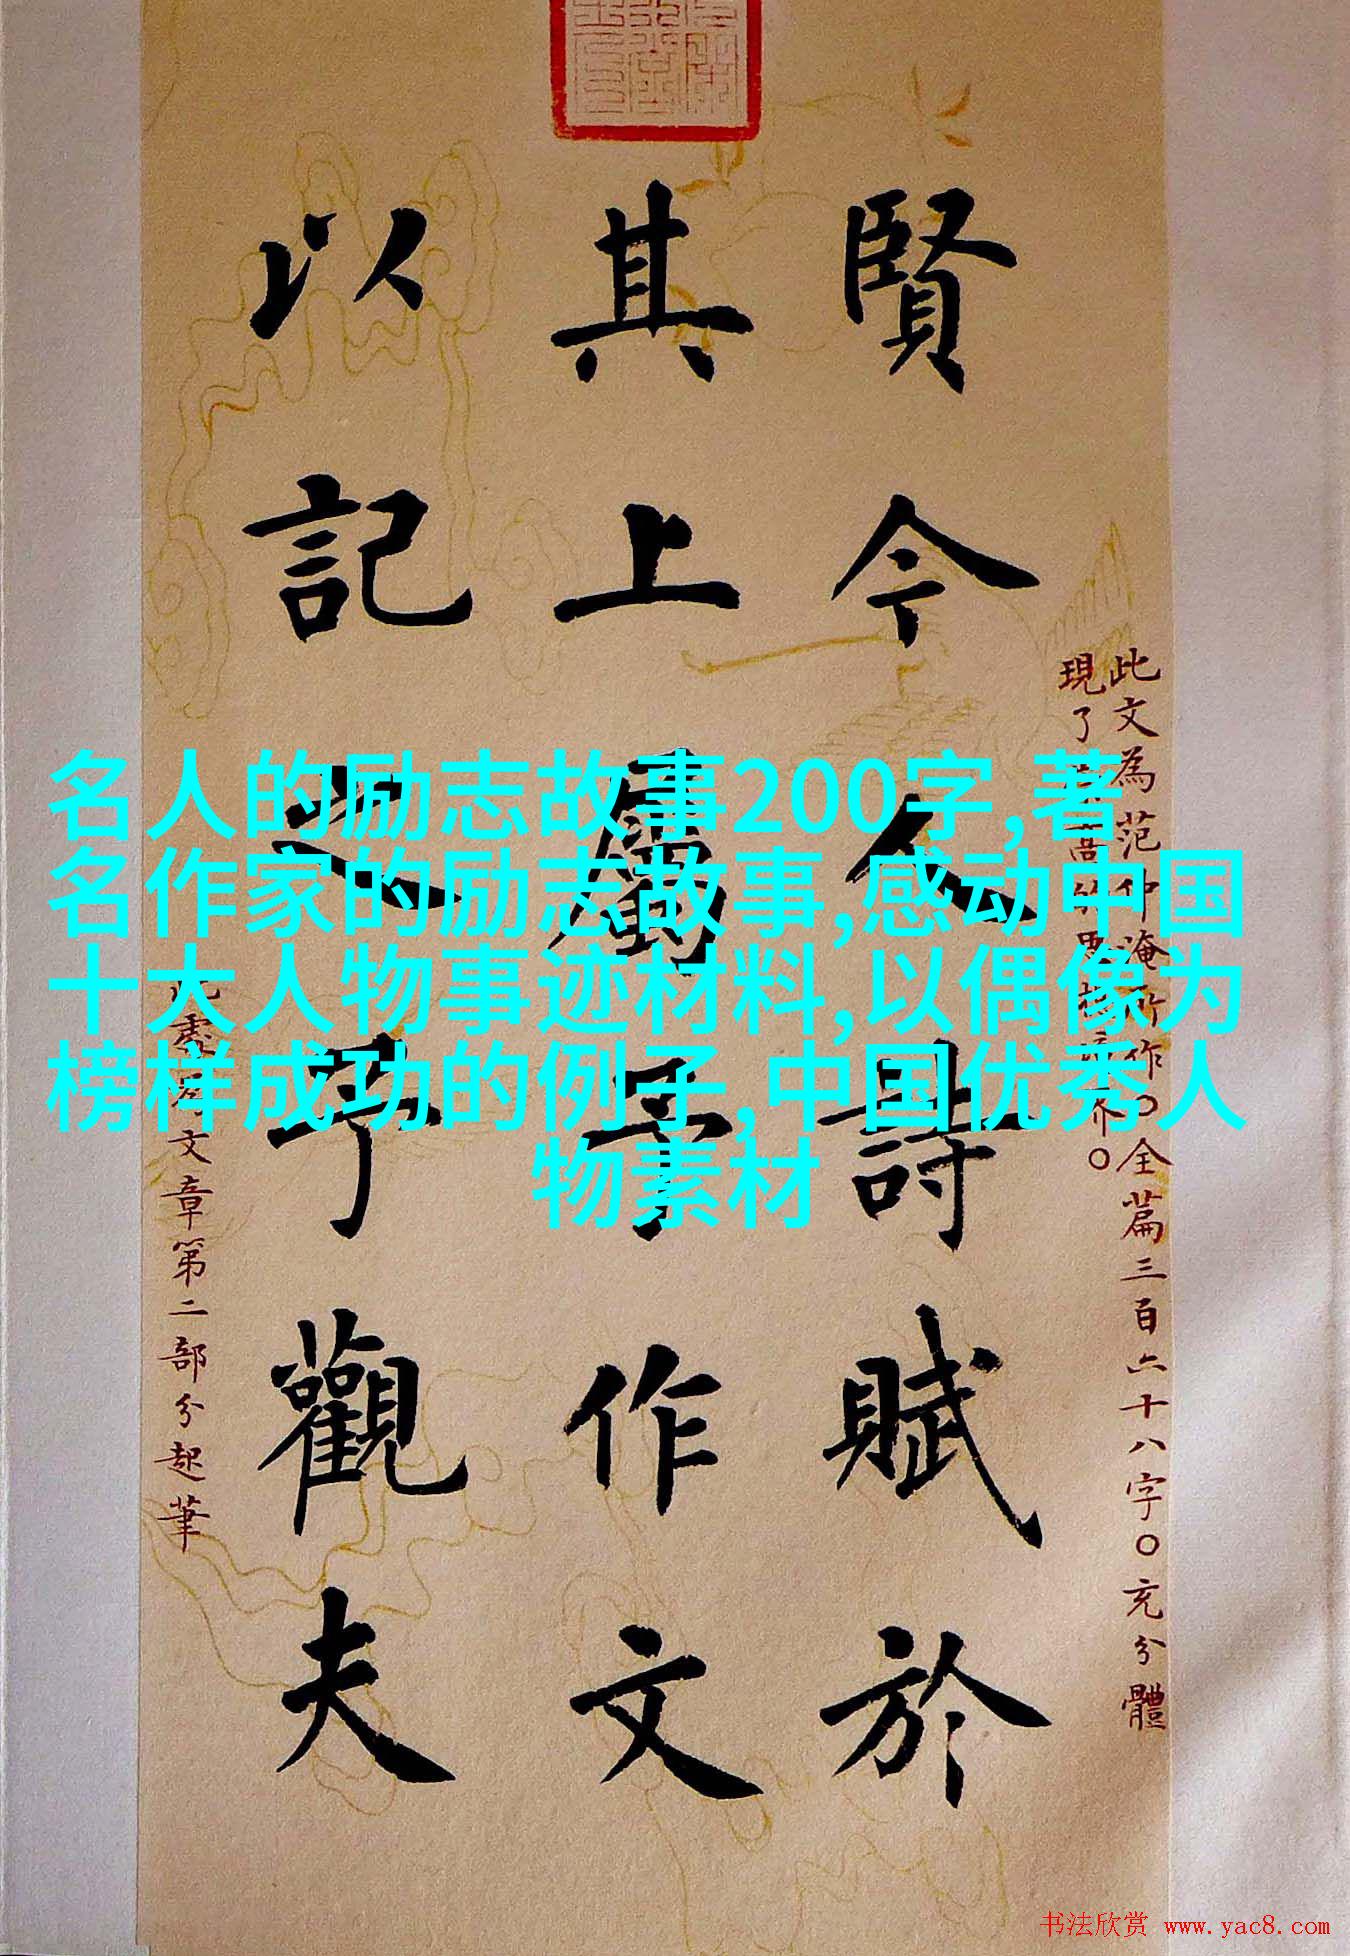 賢今人詩賦於
其上屬予作文
以記之予觀夫
此文為范仲淹所作〇全篇三百六十八字〇充分體
現了
此處 文章第二部分起筆
名人的励志故事200字,著
名作家的励志故事,感动中国
十大人物事迹材料,以偶像为
榜样成功的例子,中国优秀人
物素材
书法欣赏 www.yac8.com